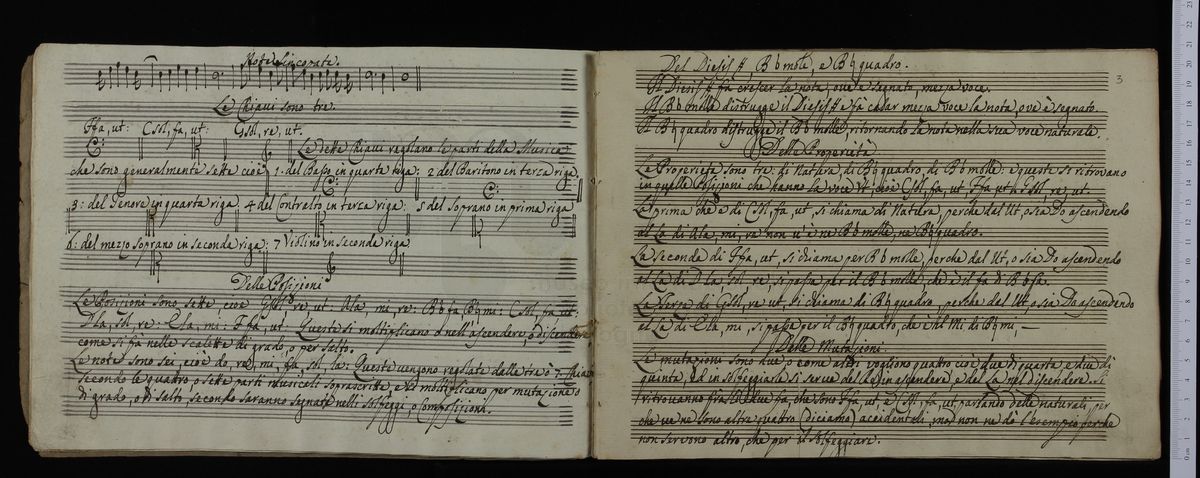 Note Sincopate.
Le Chiavi sono tre.
Ffa, ut: CSol, fa, ut: GSol, re, ut.
Le dette Chiavi regolano le parti della Musica
che sono generalmente sette cioè 1: del Basso in quarta riga: 2 del Baritono in terza riga:
3: del Tenore in quarta riga: 4 del Contralto in terza riga: 5 del Soprano in prima riga
6: del mezzo Soprano in seconda riga: 7 Violino in seconda riga
Delle Posizioni
Le Posizioni sono sette, cioè GSol, re, ut: Ala, mi, re: B♭fa B♮mi: CSol, fa, ut:
DLa, Sol, re: Ela, mi: Ffa, ut: Queste si moltiplicano o nell'ascendere, o discendere
come si fa nelle scalette di grado, o per salto.
Le note sono sei, cioè do, re, mi, fa, sol, la: Queste vengono regolate dalle tre o 7 Chiavi
secondo le quattro, o sette parti musicali soprascritte, e si moltiplicano per mutazione o
di grado, o di salto, secondo saranno segnate nelli Solfeggi, o Composizioni.
3
Del Diesis #, B♭molle, e B♮quadro.
Il Diesis # fà crescer la nota, ove è segnato, mezza voce.
Il B♭molle distrugge il Diesis # e fà calar mezza voce la nota, ove è segnato.
Il B♮quadro distrugge il B♭molle, ritornando la nota nella sua voce naturale.
Delle Proprietà
Le Proprietà sono tre: di Natura, di B♮quadro, di B♭molle: e queste si ritrovano
in quelle Posizione che hanno la voce Ut, cioè CSol, fa, ut Ffa ut: GSol, re, ut.
La prima che è di CSol, fa, ut, si chiama di Natura, perche dal Ut, o sia Do ascendendo
al La di Ala, mi, re non v'è ne B♭molle, ne B♮quadro.
La seconda di Ffa, ut, si chiama per B♭molle, perche dal Ut, o sia Do ascendendo
al La di DLa, Sol, re, si passa per il B♭molle, che è il fa di B♭fa.
La Terza di GSol, re, ut, si chiama di B♮quadro, perche dal Ut, o sia Do ascendendo
al La di Ela, mi, si passa per il B♮quadro, che è il Mi di B♮mi.
Delle Mutazioni.
Le mutazioni sono due, o come altri vogliono quattro cioè due di quarta, e due di
quinta, ed in Solfeggiare si serve del Re in ascendere, e de La nel discendere. Si
ritrovanno fra li due fa, che sono Ffa, ut, e CSol, fa, ut parlando delle naturali, per
che ve ne sono altre quattro (diciamo) accidentali, ma non ne dò l'esempio perche
non servono altro, che per il Solfeggiare.